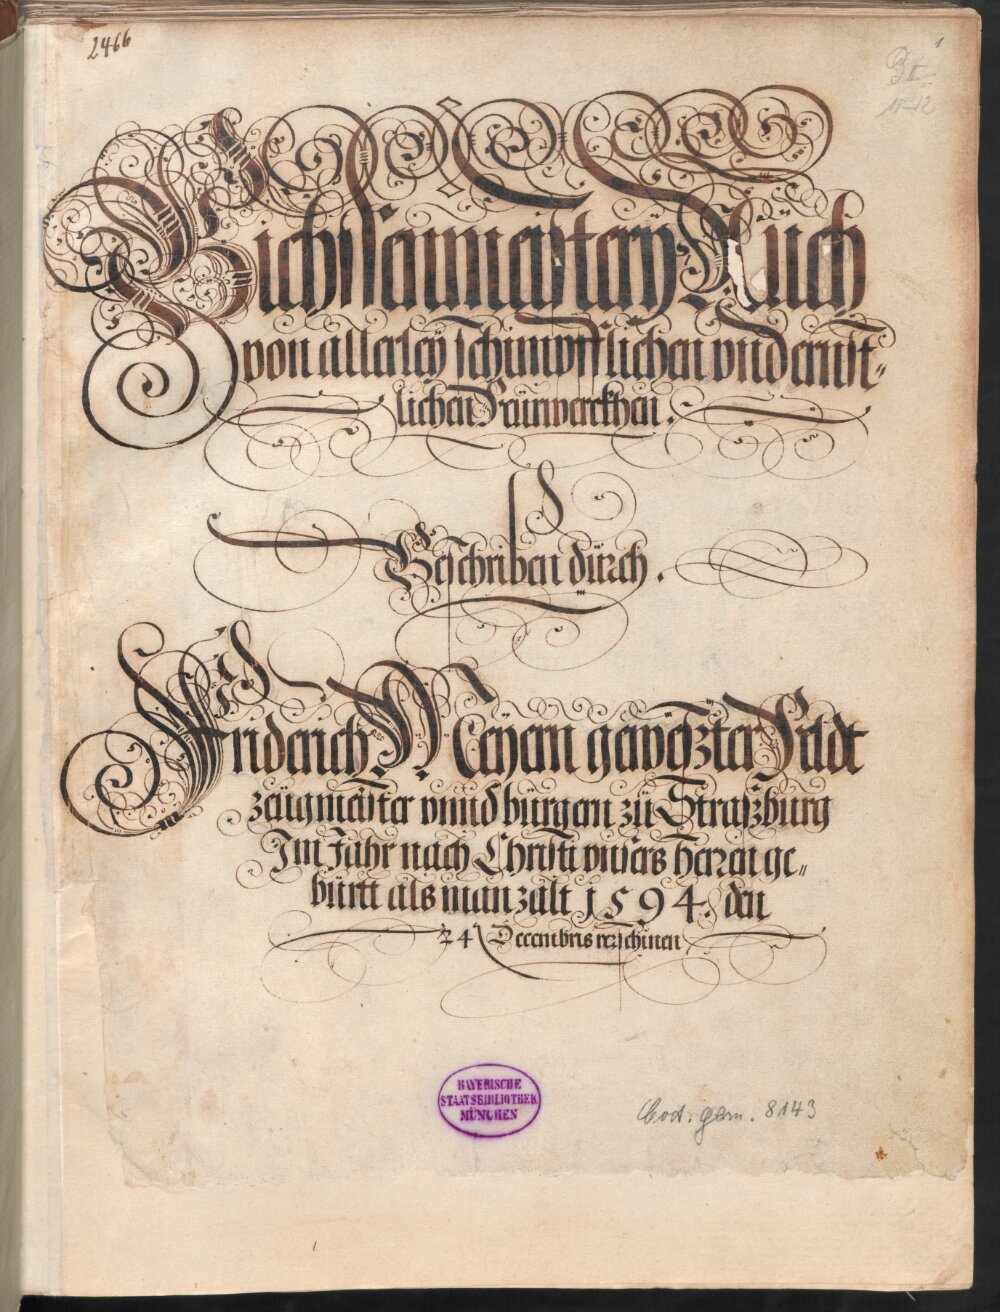 2466
1
Büchsenmeisterÿ Büch
von allerleÿ schimpfflichen vnd ernst-
lichen Feürwerckhen.
Beschriben dürch.
Friderich Meÿern geweßter Feldt
zeügmeister vnnd bürgern zü Straßburg
Im Jahr nach Christi vnsers herren ge-
bürtt als man zalt 1594. den
24 Decembris erschinen
BAYERISCHE
STAATSBIBLIOTHEK
MÜNCHEN
Cod. germ. 8143